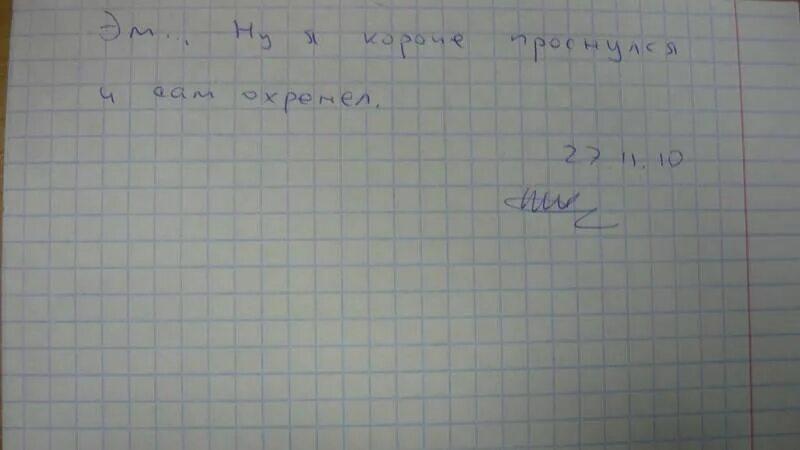 Эм... Ну я короче проснулся
и сам охренел.
27 11.10